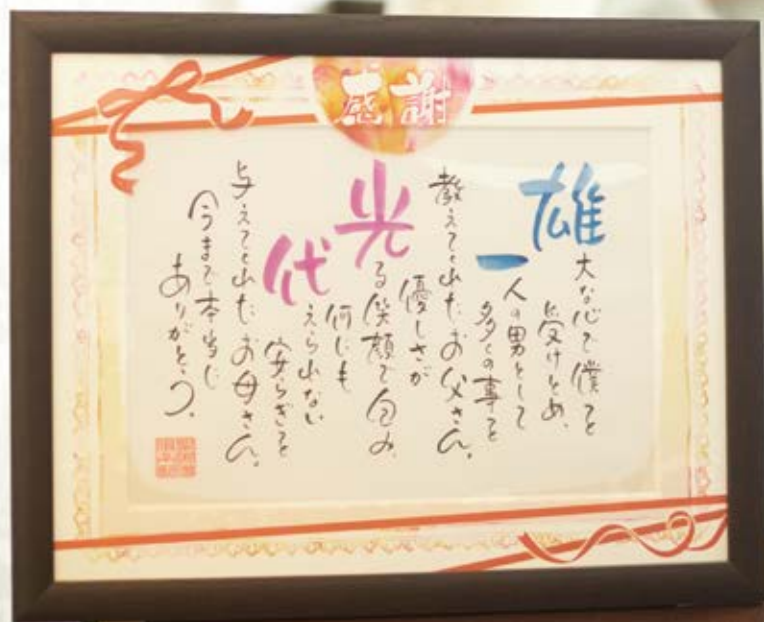 感謝
雄大な心で僕を
受けとめ、
一人の男として
多くの事を
教えてくれたお父さん。
優しさが
光る笑顔で包み、
何にも
代えられない
安らぎを
与えてくれたお母さん。
今まで本当に
ありがとう。